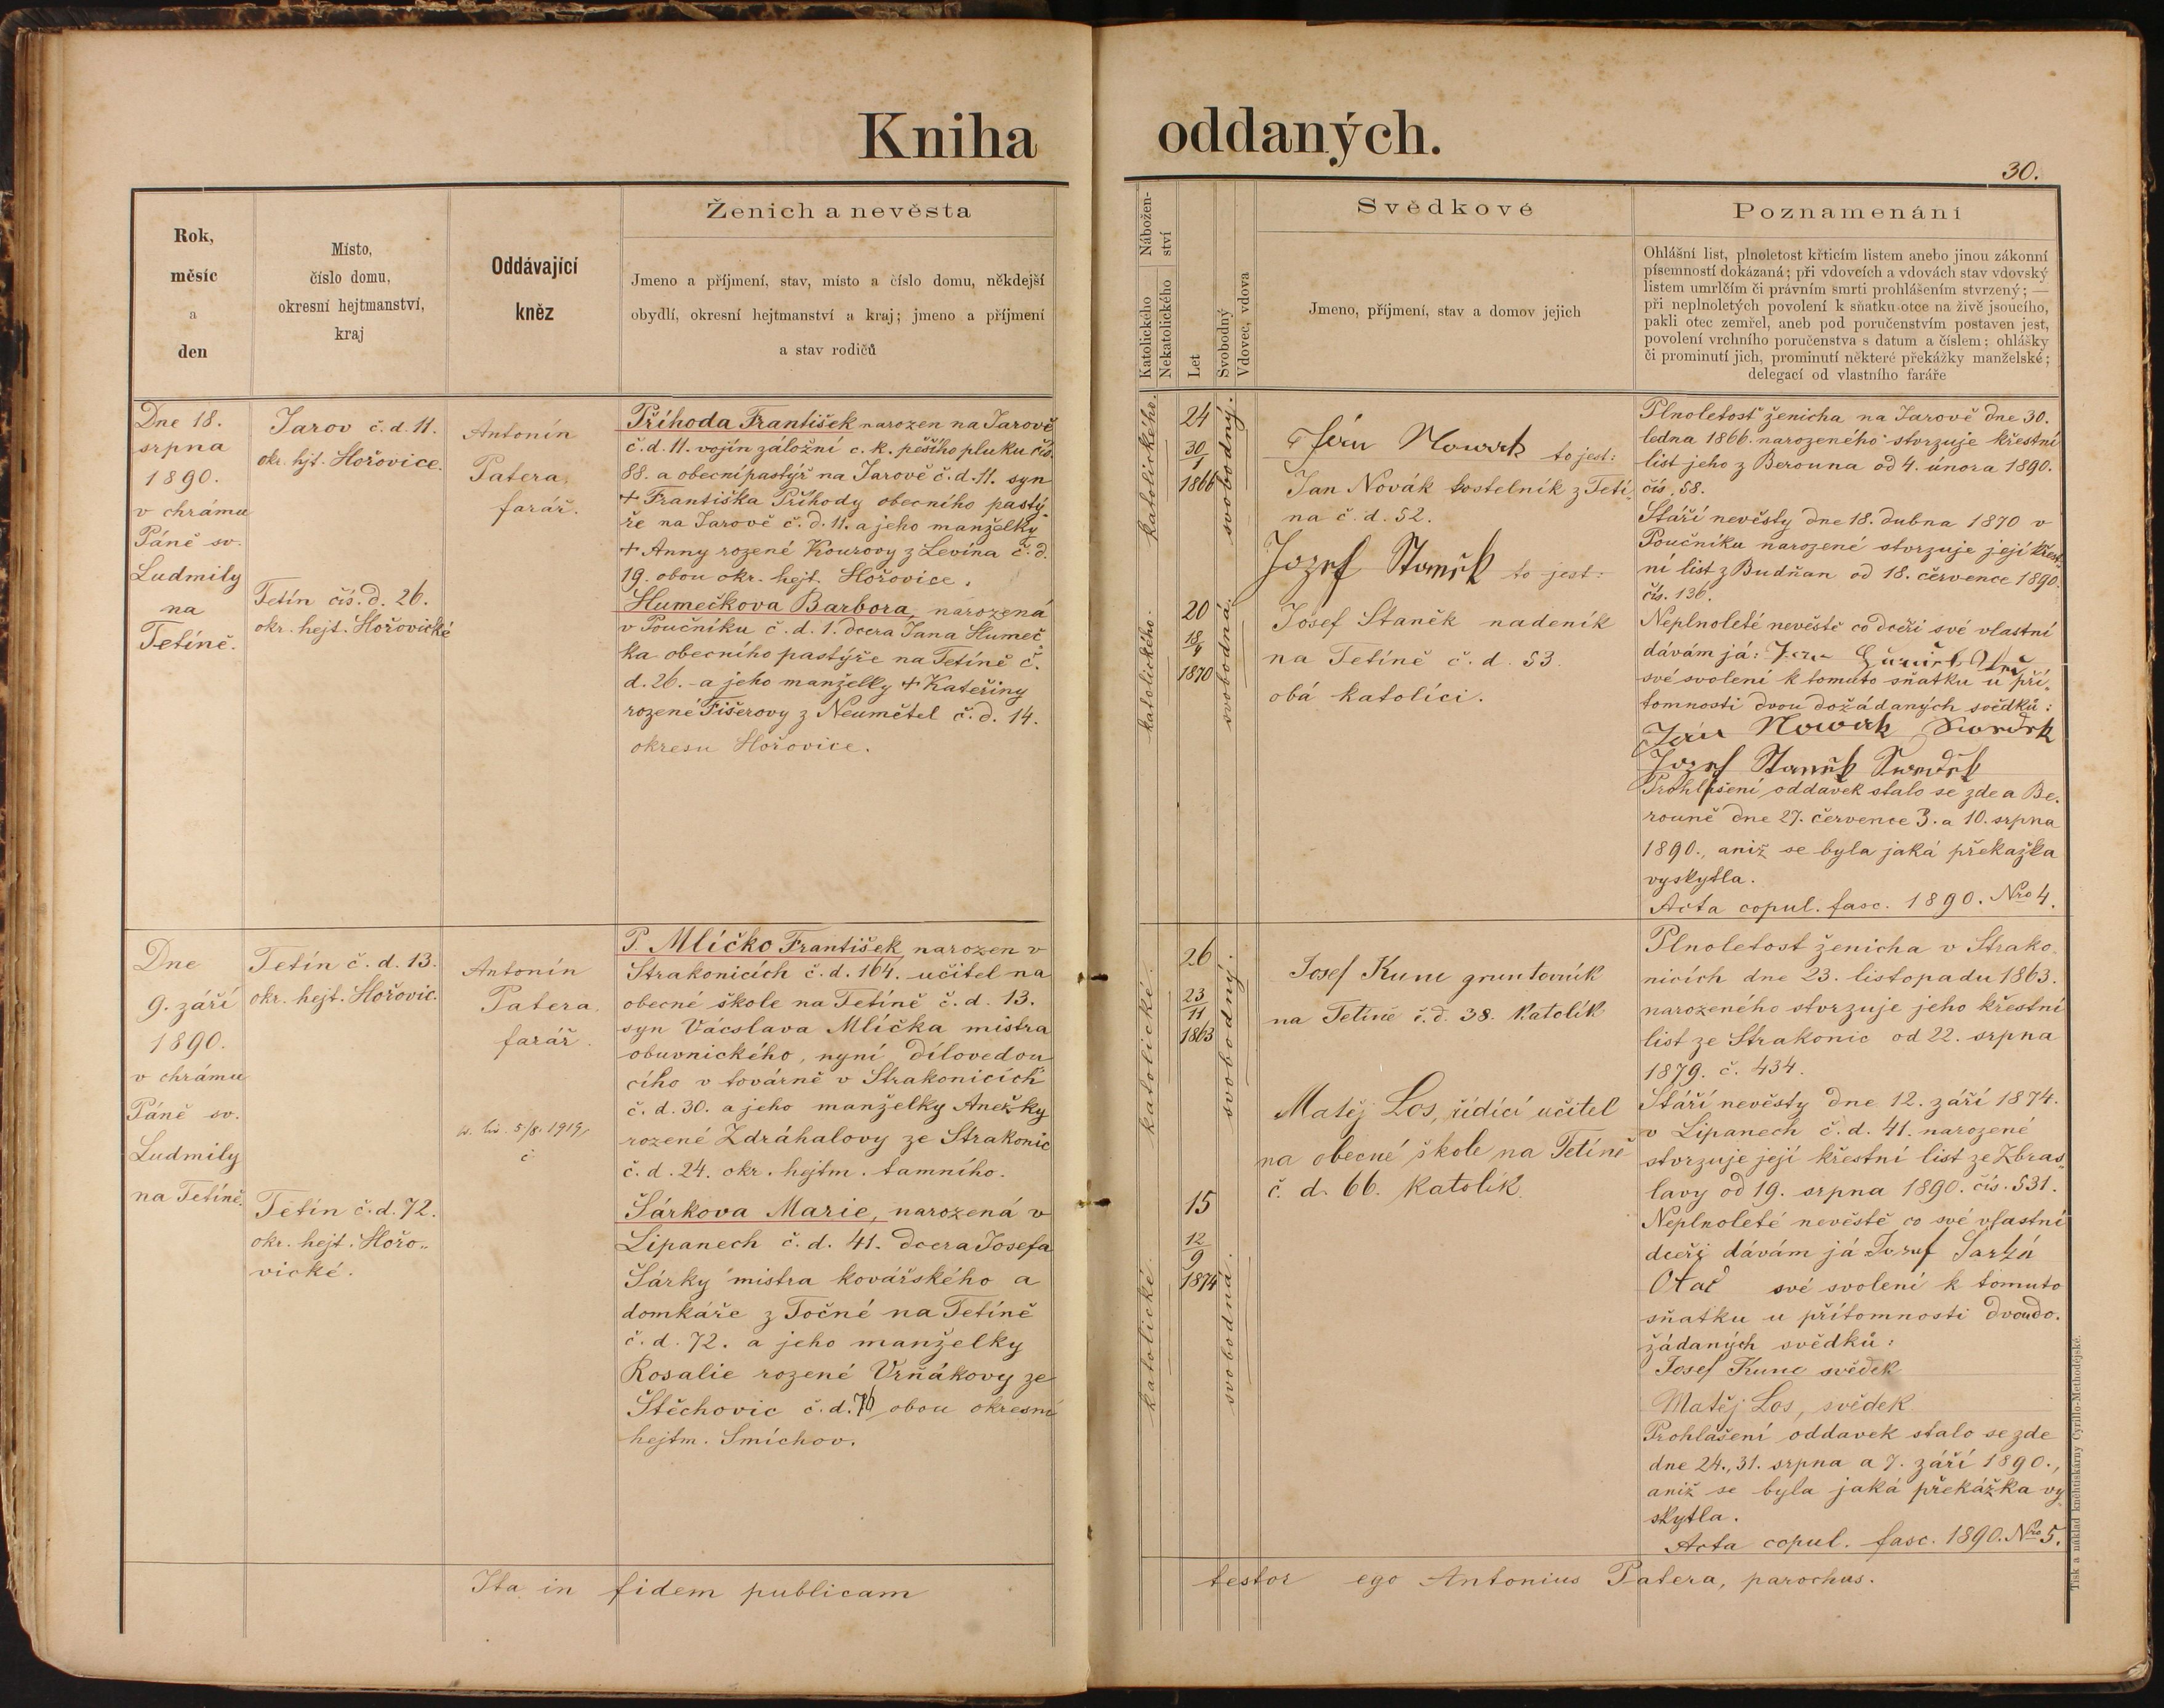 Kniha oddaných.
30.
Rok,
měsíc
a
den
Místo,
číslo domu,
okresní hejtmanství,
kraj
Oddávající
kněz
Ženich a nevěsta
Jmeno a příjmení, stav, místo a číslo domu, někdejší
obydlí, okresní hejtmanství a kraj; jmeno a příjmení
a stav rodičů
Nábožen-
ství
Katolického
Nekatolického
Let
Svobodný
Vdovec, vdova
Svědkové
Jmeno, příjmení, stav a domov jejich
Poznamenání
Ohlášní list, plnoletost křticím listem anebo jinou zákonní
písemností dokázaná; při vdovcích a vdovách stav vdovský
listem umrlčím či právním smrti prohlášením stvrzený; —
při neplnoletých povolení k sňatku otce na živě jsoucího,
pakli otec zemřel, aneb pod poručenstvím postaven jest,
povolení vrchního poručenstva s datum a číslem; ohlášky
či prominutí jich, prominutí některé překážky manželské;
delegací od vlastního faráře
Dne 18.
srpna
1890.
v chrámu
Páně sv.
Ludmily
na
Tetíně.
Jarov č. d. 11.
okr. hjt. Hořovice.
Tetín čís. d. 26.
okr. hejt. Hořovické
Antonín
Patera,
farář.
Příhoda František narozen na Jarově
č. d. 11. vojín záložní c. k. pěšího pluku čís.
88. a obecní pastýř na Jarově č. d. 11. syn
+ Františka Příhody obecního pastý-
ře na Jarově č. d. 11. a jeho manželky
+ Anny rozené Kourovy z Levína č. d.
19. obou okr. hejt. Hořovice.
Humečkova Barbora, narozená
v Poučníku č. d. 1. dcera Jana Humeč
ka obecního pastýře na Tetíně č.
d. 26. a jeho manželky + Kateřiny
rozené Fišerovy z Neumětel č. d. 14.
okresu Hořovice.
katolického.
24
30/1
1866
svobodný.
katolického.
20
18/4
1870
svobodná.
Ján Nowak to jest:
Jan Novák kostelník z Tetí-
na č. d. 52.
Jozef Staněk to jest:
Josef Staněk nadeník
na Tetíně č. d. 53.
obá katolíci.
Plnoletosť ženicha na Jarově dne 30.
ledna 1866. narozeného stvrzuje křestní
list jeho z Berouna od 4. února 1890.
čís. 58.
Stáří nevěsty dne 18. dubna 1870 v
Poučníku narozené stvrzuje její křest-
ní list z Budňan od 18. července 1890.
čís. 136.
Neplnoleté nevěstě co dceři své vlastní
dávám já:
své svolení k tomuto sňatku u pří-
tomnosti dvou dožádaných svědků:
Ján Nowak Swedek
Jozef Staněk Swedek
Prohlášení oddavek stalo se zde a Be-
rouně dne 27. července 3. a 10. srpna
1890., aniž se byla jaká překažka
vyskytla.
Acta copul. fasc. 1890. Nro 4.
Dne
9. září
1890.
v chrámu
Páně sv.
Ludmily
na Tetíně.
Tetín č. d. 13.
okr. hejt. Hořovic.
Tetín č. d. 72.
okr. hejt. Hořo-
vické.
Antonín
Patera,
farář.
5/8. 1919,
P. Mlíčko František, narozen v
Strakonicích č. d. 164. učitel na
obecné škole na Tetíně č. d. 13.
syn Vácslava Mlíčka mistra
obuvnického, nyní dílovedou
cího v továrně v Strakonicích
č. d. 30. a jeho manželky Anežky
rozené Zdráhalovy ze Strakonic
č. d. 24. okr. hejtm. tamního.
Šárkova Marie, narozená v
Lipanech č. d. 41. dcera Josefa
Šárky mistra kovářského a
domkáře z Točné na Tetíně
č. d. 72. a jeho manželky
Rosalie rozené Vrňákovy ze
Štěchovic č. d. 76 obou okresní
hejtm. Smíchov.
katolické.
26
23/11
1863
svobodný.
katolické.
15
12/9
1874
svobodná.
Josef Kunc gruntovník
na Tetíně č. d. 38. Katolík
Matěj Los, řídící učitel
na obecné škole na Tetíně
č. d. 66. Katolík.
Plnoletost ženicha v Strako-
nicích dne 23. listopadu 1863.
narozeného stvrzuje jeho křestní
list ze Strakonic od 22. srpna
1879. č. 434.
Stáří nevěsty dne 12. září 1874.
v Lipanech č. d. 41. narozené
stvrzuje její křestní list ze Zbras-
lavy od 19. srpna 1890. čís. 531.
Neplnoleté nevěstě co své vlastní
dceři dávám já Jozef Šarka
Otac své svolení k tomuto
sňatku u přítomnosti dvou do-
žádaných svědků:
Josef Kunc svědek
Matěj Los, svědek
Prohlášení oddavek stalo se zde
dne 24., 31. srpna a 7. září 1890.,
aniž se byla jaká překážka vy-
skytla.
Acta copul. fasc. 1890. Nro 5.
Ita in fidem publicam testor ego Antonius Patera, parochus.
Tisk a náklad knihtiskárny Cyrillo-Methodějské.